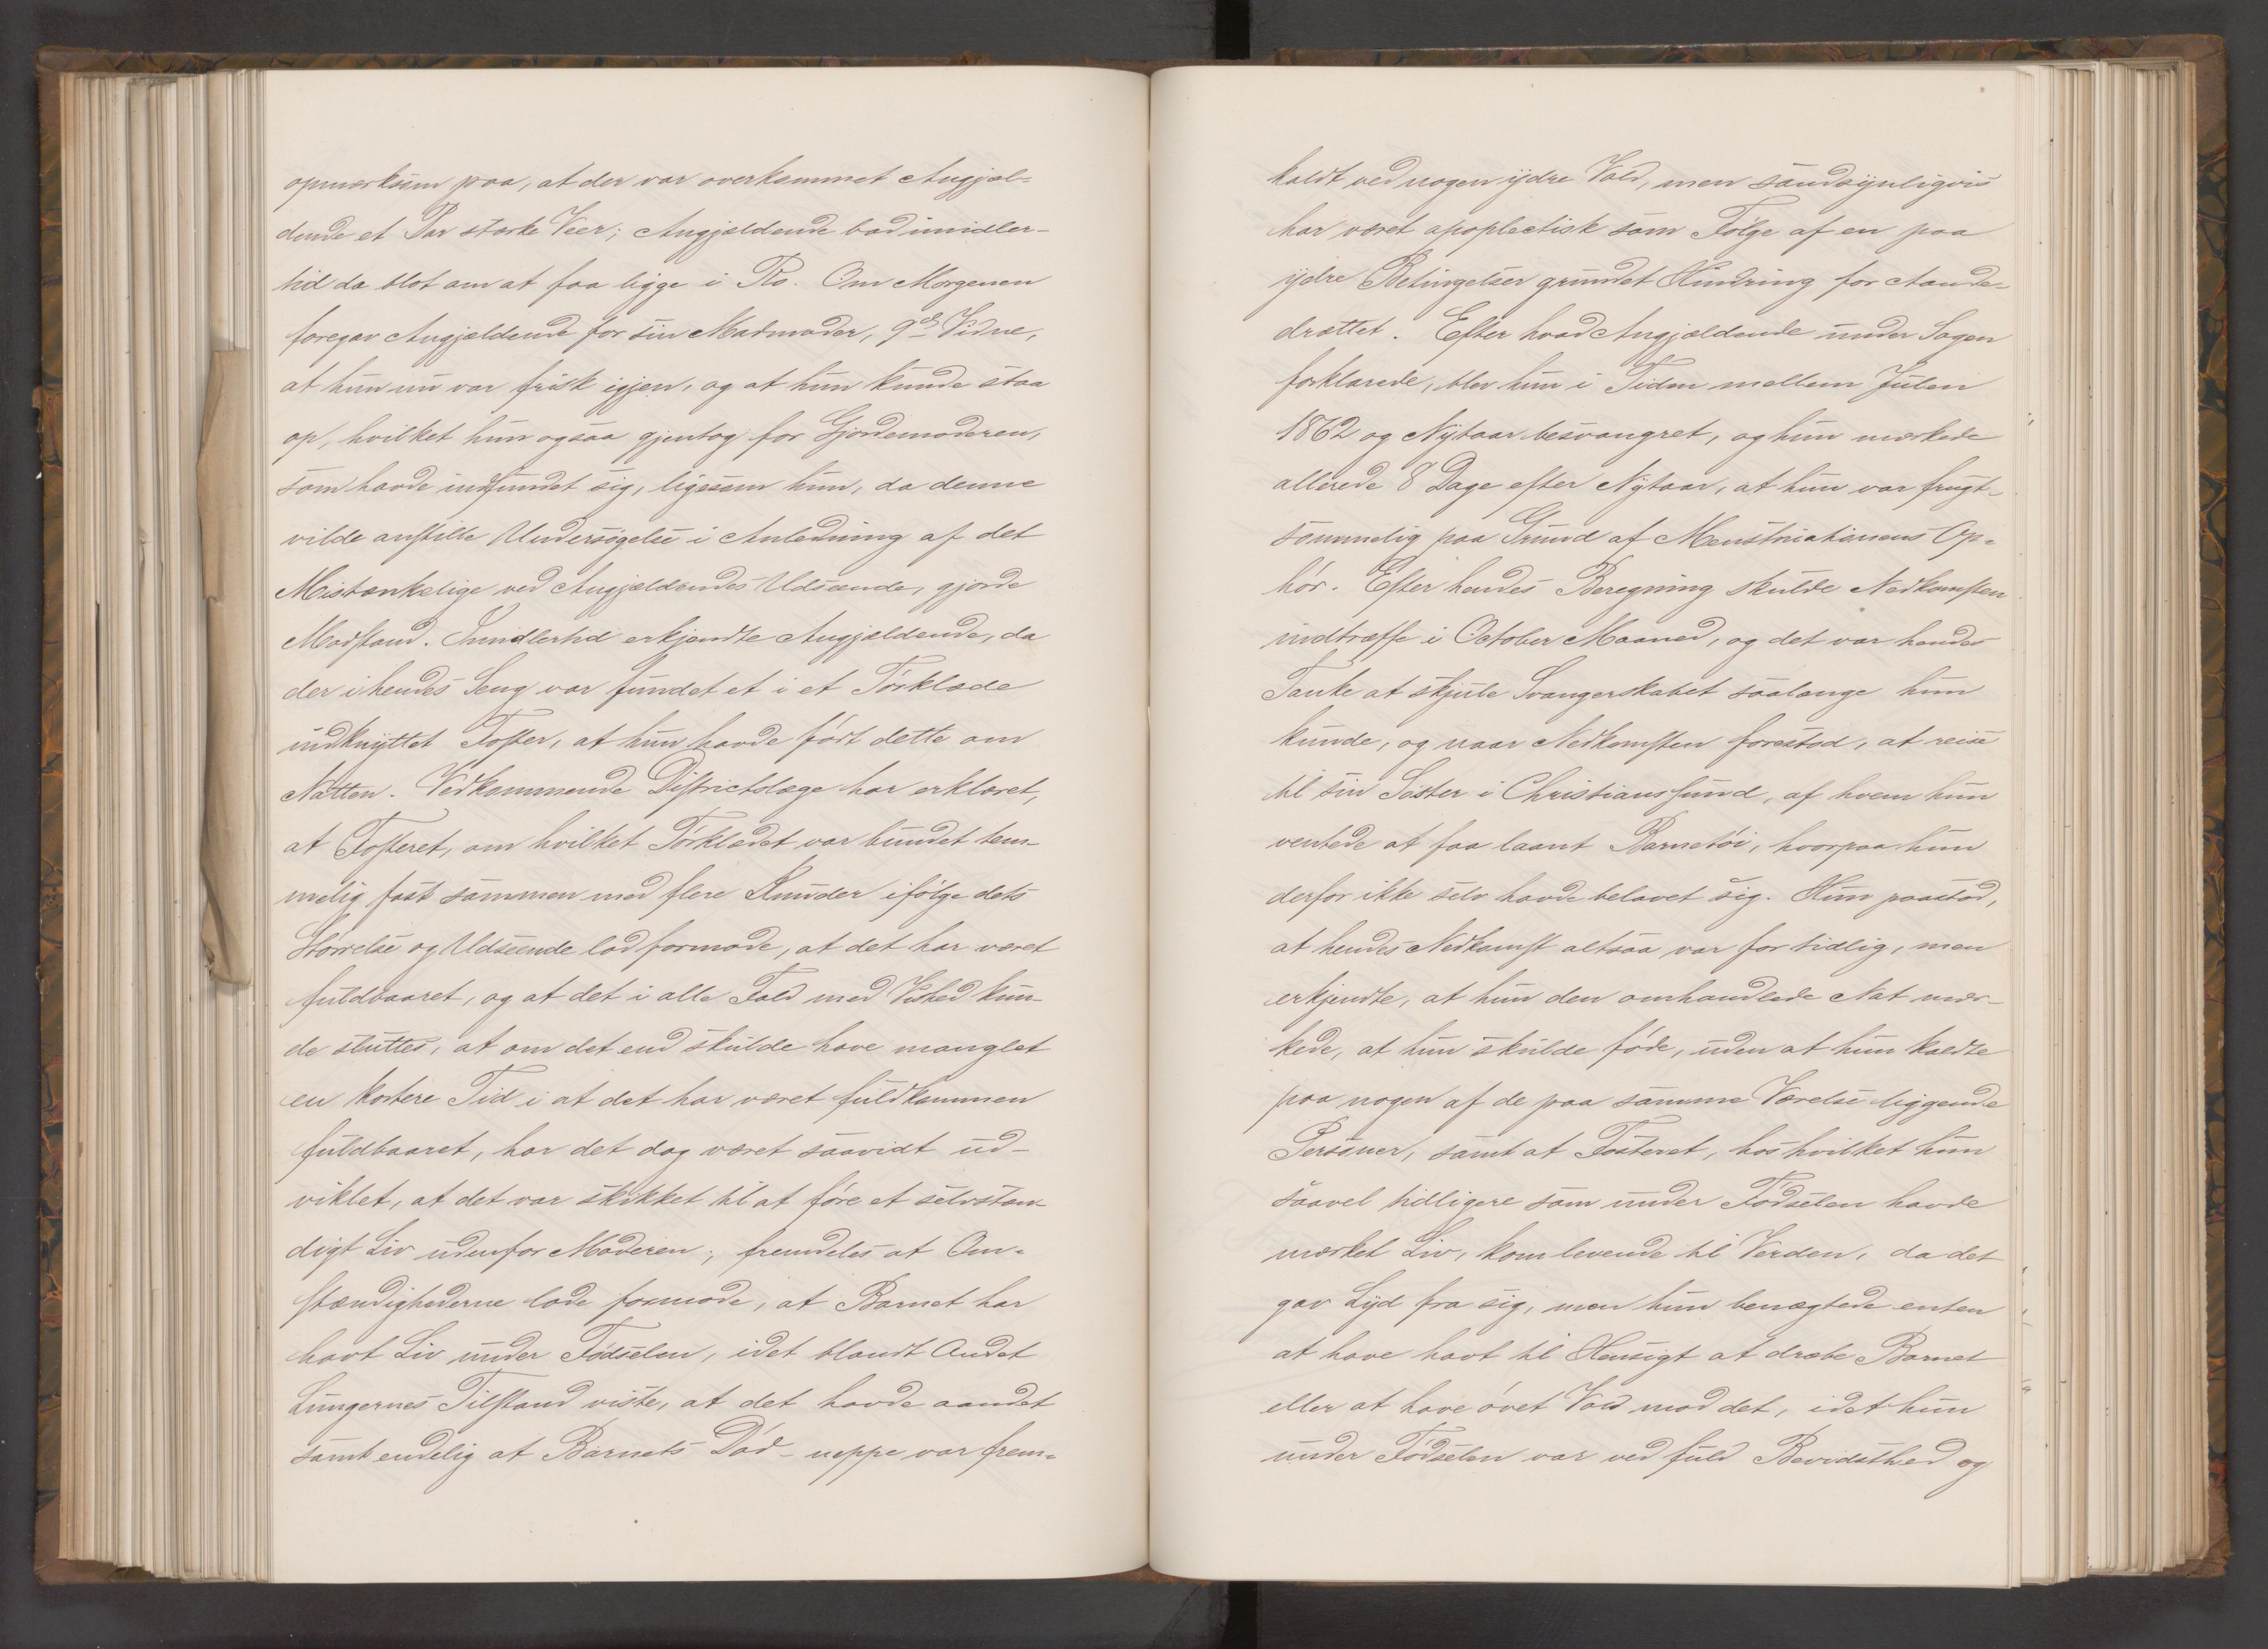 opmærksom paa, at der var overkommet Angjæl-
dende et Par stærke Veer; Angjældende bad imidler-
tid da blot om at faa ligge i Ro. Om Morgenen
foregav Angjældende for sin Madmoder, 9de Vidne,
at hun nu var frisk igjen, og at hun kunde staa
op, hvilket hun ogsaa gjentog for Gjordemoderen,
som havde indfundet sig, ligesom hun, da denne
vilde anstille Undersøgelse i Anledning af det
Mistænkelige ved Angjældendes Udseende, gjorde
Modstand. Imidlertid erkjendte Angjældende, da
der i hendes Seng var fundet et i et Tørklæde
indknyttet Foster, at hun havde født dette om
Natten. Vedkommende Districtslæge har erklæret,
at Fosteret, om hvilket Tørklædet var bundet tem-
melig fast sammen med flere Knuder ifølge dets
Størrelse og Udseende lod formode, at det har været
fuldbaaret, og at det i alle Fald med Vished kun-
de sluttes, at om det end skulde have manglet
en kortere Tid i at det har været fuldkommen
fuldbaaret, har det dog været saavidt ud-
viklet, at det var skikket til at føre et selvstæn-
digt Liv udenfor Moderen; fremdeles at Om-
stændighederne lode formode, at Barnet har
havt Liv under Fødselen, idet blandt Andet
Lungernes Tilstand viste, at det havde aandet
samt endelig at Barnets Død neppe var frem-
kaldt ved nogen ydre Vold, men sandsynligvis
har været apoplectisk som Følge af en paa
ydre Betingelser grundet Hindring for Aande-
drættet. Efter hvad Angjældende under Sagen
forklarede, blev hun i Tiden mellem Julen
1862 og Nytaar besvangret, og hun mærkede
allerede 8 Dage efter Nytaar, at hun var frugt-
sommelig paa Grund af Menstruationens Op-
hør. Efter hendes Beregning skulde Nedkomsten
indtræffe i October Maaned, og det var hendes
Tanke at skjule Svangerskabet saalænge hun
kunde, og naar Nedkomsten forestod, at reise
til sin Søster i Christianssund, af hvem hun
ventede at faa laant Barnetøi, hvorpaa hun
derfor ikke selv havde belavet sig. Hun paastod,
at hendes Nedkomst altsaa var for tidlig, men
erkjendte, at hun den omhandlede Nat mær-
kede, at hun skulde føde, uden at hun kaldte
paa nogen af de paa samme Værelse liggende
Personer, samt at Fosteret, hos hvilket hun
saavel tidligere som under Fødselen havde
mærket Liv, kom levende til Verden, da det
gav Lyd fra sig, men hun benægtede enten
at have havt til Hensigt at dræbe Barnet
eller at have øvet Vold mod det, idet hun
under Fødselen var ved fuld Bevidsthed og